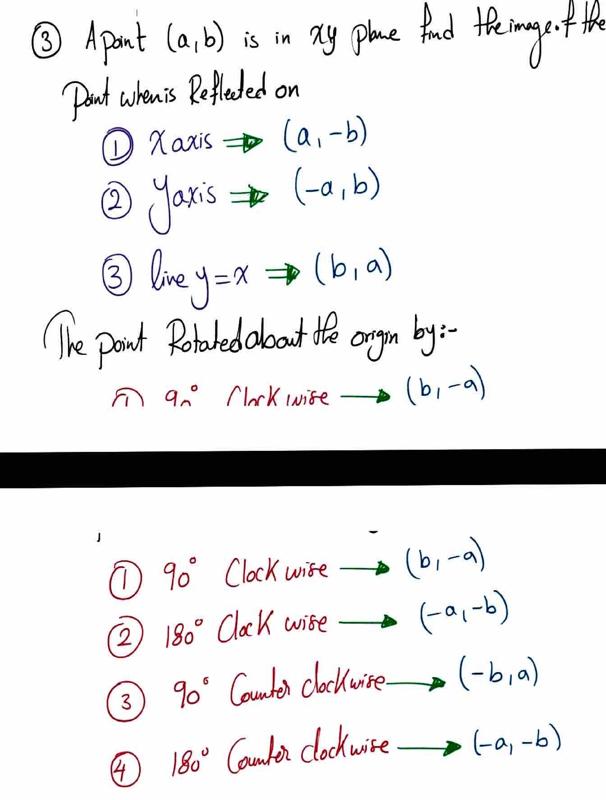 ③ A point (a,b) is in xy plane find the image of the
Point when is Reflected on
① X axis ⇒ (a,-b)
② Y axis ⇒ (-a,b)
③ line y=x ⇒ (b,a)
The point Rotated about the origin by:-
① 90° Clock wise → (b,-a)
① 90° Clock wise → (b,-a)
② 180° Clock wise → (-a,-b)
③ 90° Counter clockwise → (-b,a)
④ 180° Counter clockwise → (-a,-b)